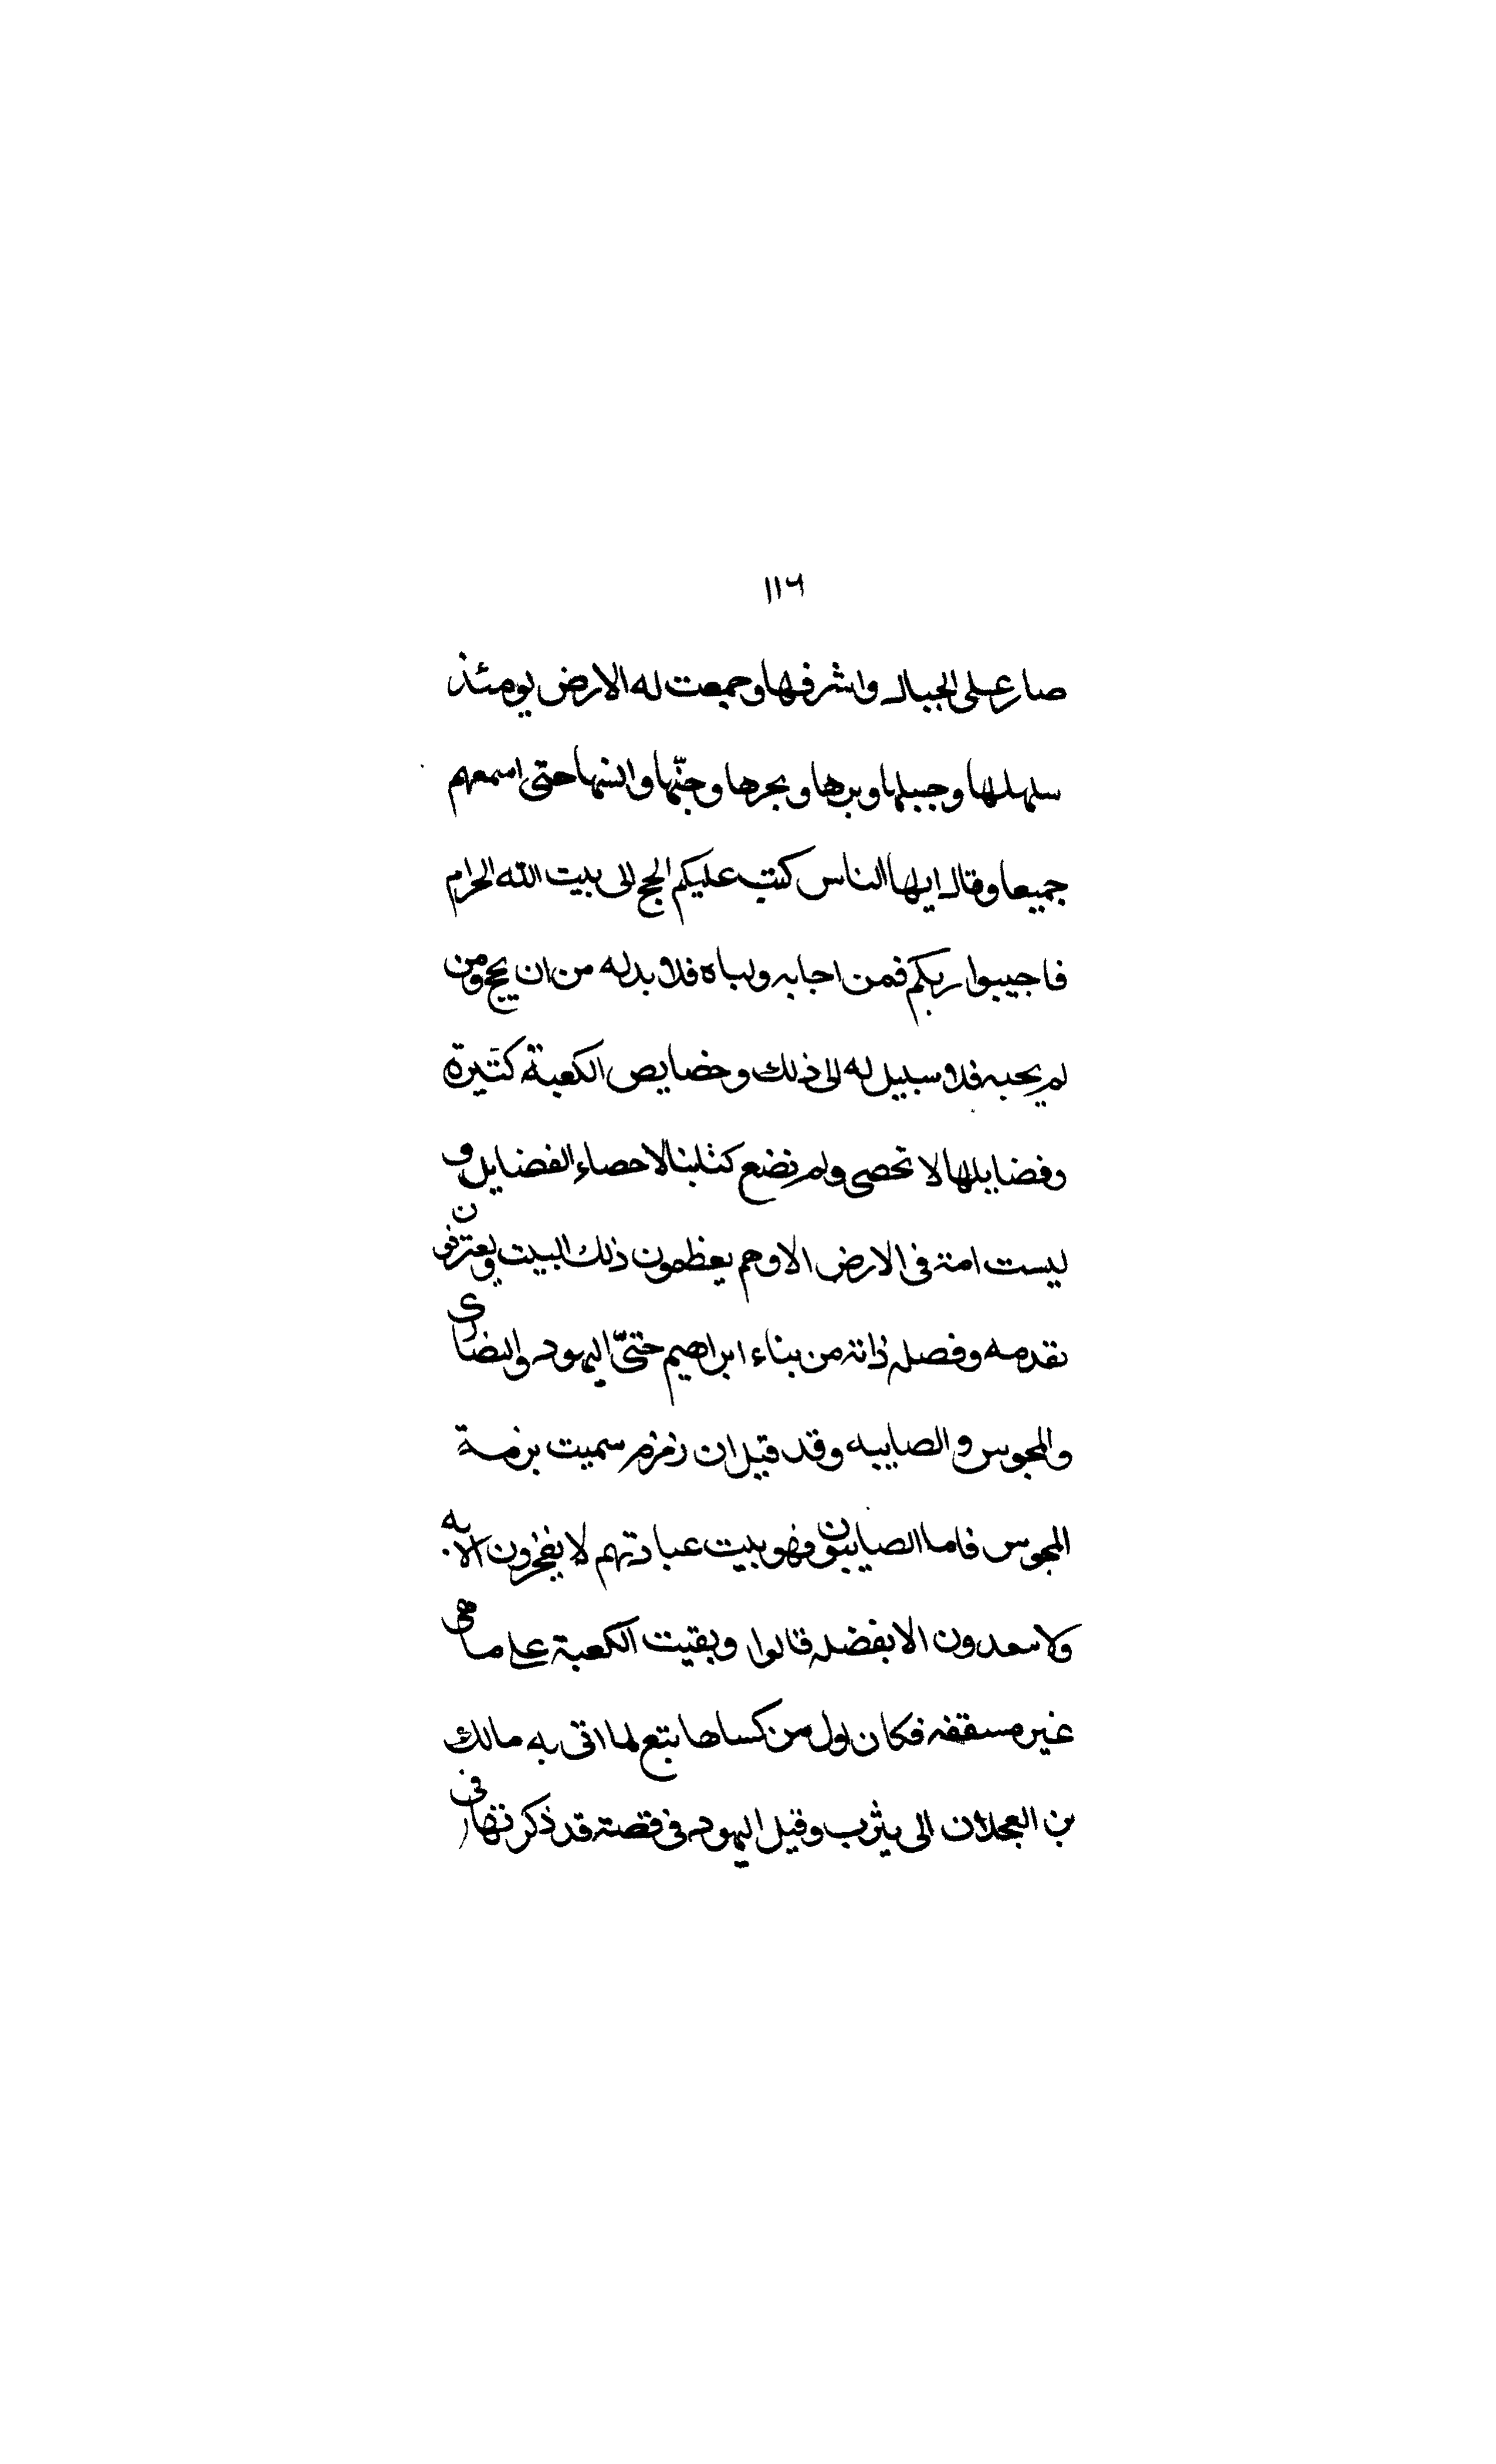 ١١٦
صار على الجبال واشرفها وجمعت له الارض يومئذ
سهلها وجبلها وبرها وبحرها وجنّها وانسها حتى اسمعهم
جميعا وقال ايها الناس كتب عليكم الحج الى بيت الله الحرام
فاجيبوا ربكم فمن اجابه ولباه فلا بد له من ان يحج ومن
لم يحبه فلا سبيل له الى ذلك وخصايص الكعبة كثيرة
وفضايلها لا تحصى ولم نضع كتابنا لاحصاء الفضايل و
ليست امة فى الارض الا وهم يعظمون ذلك البيت ويعترفون
بقدمه وفضله وانه من بناء ابراهيم حتىّ اليهود والنصارى
والمجوس والصايبه وقد قيل ان زمزم سميت بزمزمة
المجوس فاما الصايبون فهو بيت عبادتهم لا يفخرون الا به
ولا سعدون الا بفضله قالوا وبقيت الكعبة على ما هى
غير مسقفه فكان اول من كساها تبع لما اتى به مالك
بن العجلان الى يثرب وقيل اليهود فى قصة قد ذكرتها فى